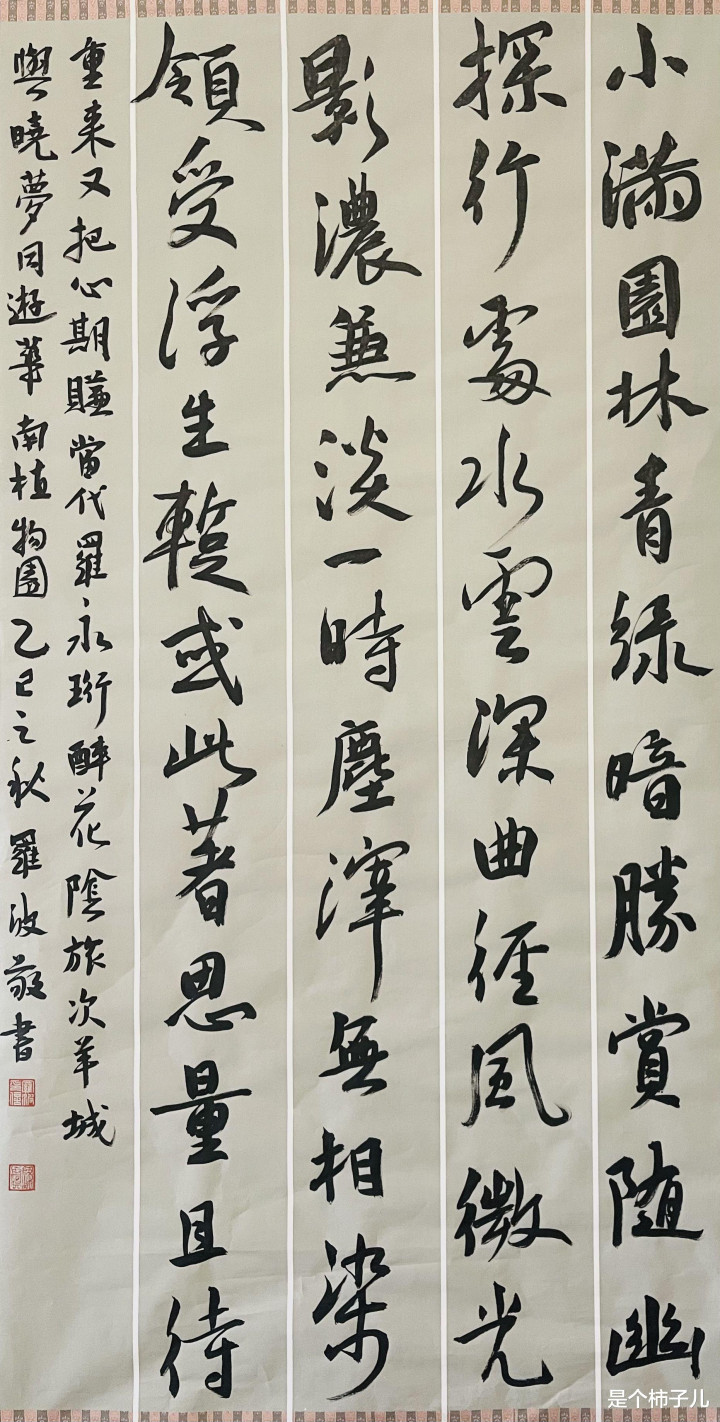 小滿園林青綠暗勝賞隨幽
探行處水雲深曲徑風微光
影濃兼淡一時塵滓無相染
領受浮生蹔或此著思量且待
重来又把心期賺當代羅永珩醉花陰旅次羊城
與曉夢同遊華南植物園乙巳之秋羅波敬書
是个柿子儿